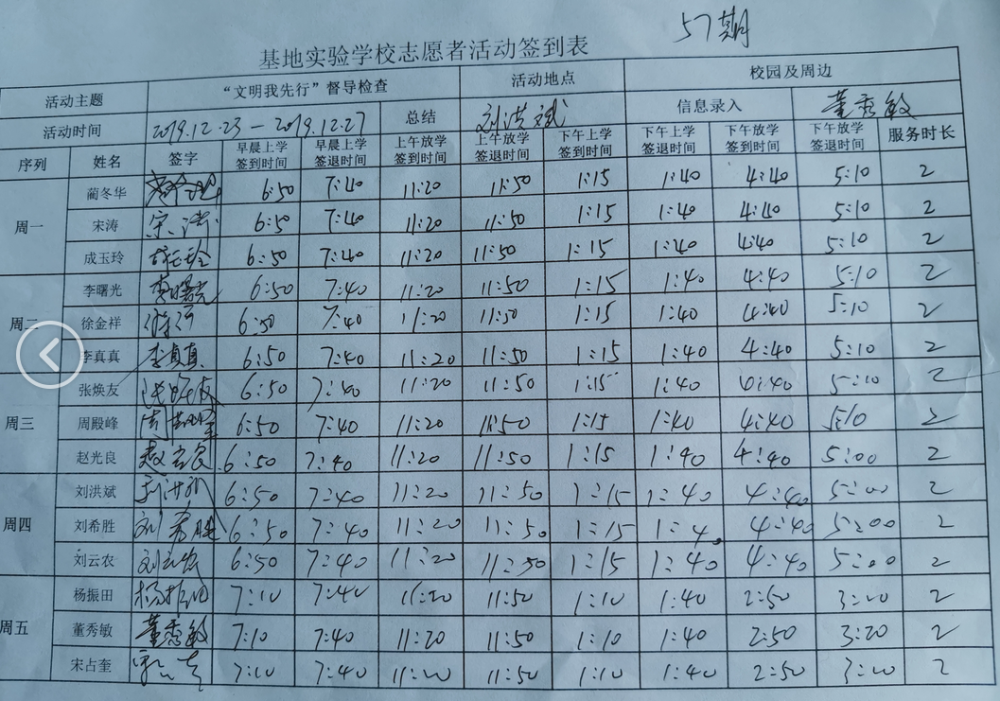 57期
基地实验学校志愿者活动签到表
活动主题 “文明我先行”督导检查 活动地点 校园及周边
活动时间 2019.12.23-2019.12.27 总结 刘洪斌 信息录入 董秀敏
序列 姓名 签字 早晨上学签到时间 早晨上学签退时间 上午放学签到时间 上午放学签退时间 下午上学签到时间 下午上学签退时间 下午放学签到时间 下午放学签退时间 服务时长
周一 蔺冬华 6:50 7:40 11:20 11:50 1:15 1:40 4:40 5:10 2
宋涛 宋涛 6:50 7:40 11:20 11:50 1:15 1:40 4:40 5:10 2
成玉玲 成玉玲 6:50 7:40 11:20 11:50 1:15 1:40 4:40 5:10 2
周二 李曙光 李曙光 6:50 7:40 11:20 11:50 1:15 1:40 4:40 5:10 2
徐金祥 6:50 7:40 11:20 11:50 1:15 1:40 4:40 5:10 2
李真真 李真真 6:50 7:40 11:20 11:50 1:15 1:40 4:40 5:10 2
周三 张焕友 6:50 7:40 11:20 11:50 1:15 1:40 4:40 5:10 2
周殿峰 周殿峰 6:50 7:40 11:20 11:50 1:15 1:40 4:40 5:10 2
赵光良 6:50 7:40 11:20 11:50 1:15 1:40 4:40 5:00 2
周四 刘洪斌 刘洪斌 6:50 7:40 11:20 11:50 1:15 1:40 4:40 5:00 2
刘希胜 刘希胜 6:50 7:40 11:20 11:50 1:15 1:40 4:40 5:00 2
刘云农 刘云农 6:50 7:40 11:20 11:50 1:15 1:40 4:40 5:00 2
周五 杨振田 杨振田 7:10 7:40 11:20 11:50 1:10 1:40 2:50 3:20 2
董秀敏 董秀敏 7:10 7:40 11:20 11:50 1:10 1:40 2:50 3:20 2
宋占奎 7:10 7:40 11:20 11:50 1:10 1:40 2:50 3:20 2